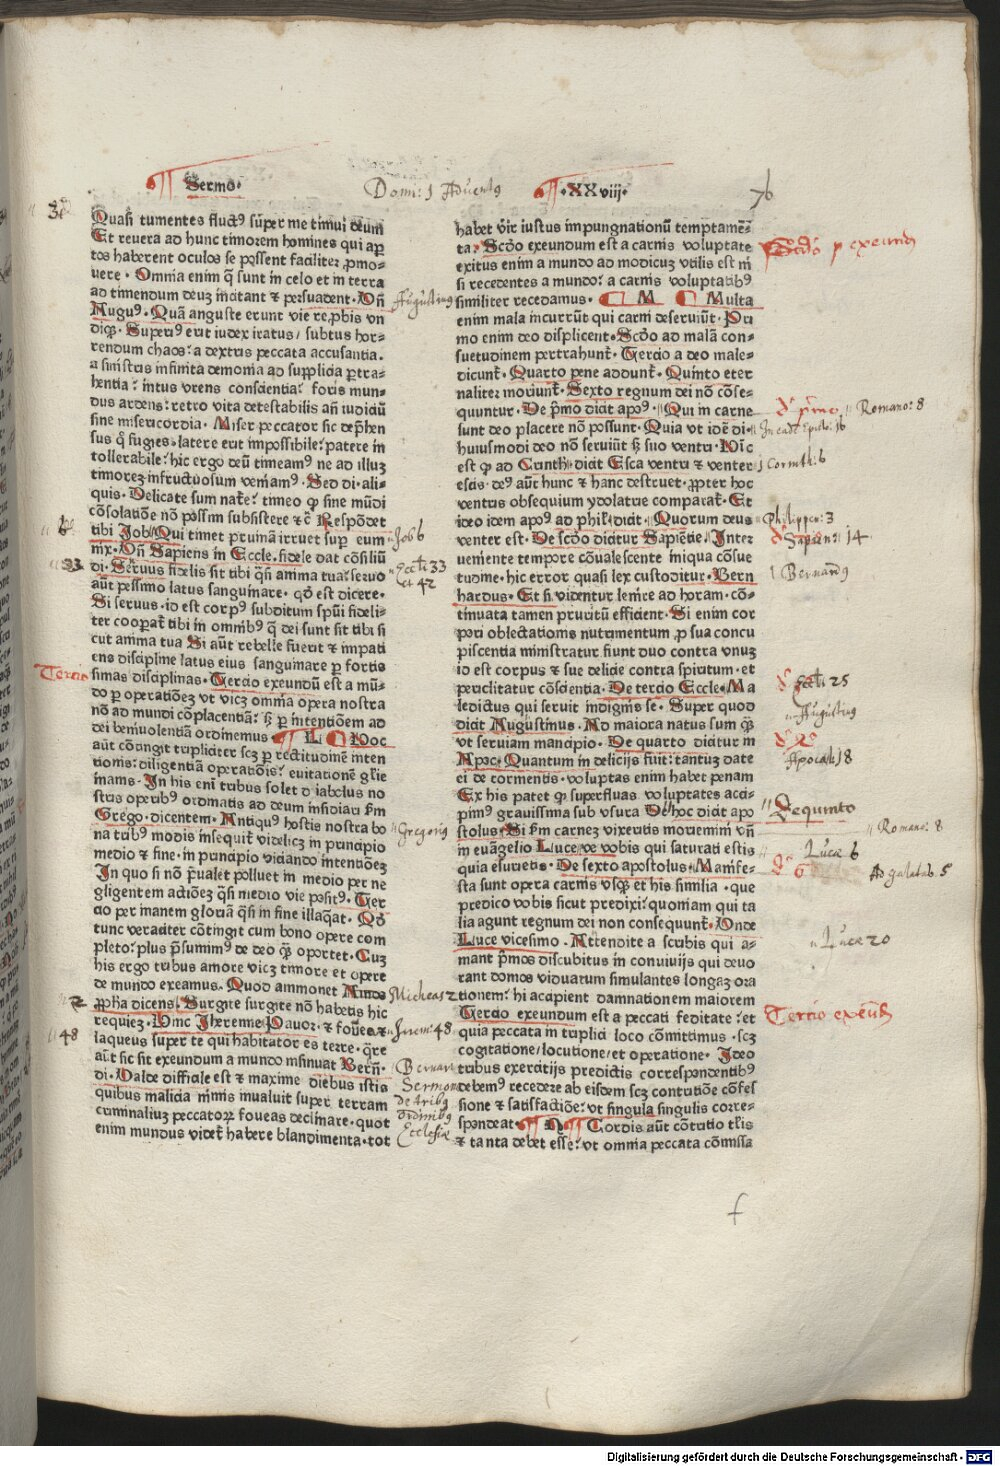 Sermo. Domi: 1 Aduentꝰ .XXviij. 76
Quasi tumentes fluctꝰ super me timui deum
Et reuera ad hunc timorem homines qui aꝑ
tos haberent oculos se possent faciliter ꝓmo⸗
uere. Omnia enim q̄ sunt in celo et in terra
ad timendum deuꝫ incitant ⁊ persuadent. Vn̄
Augꝰ. Quā anguste erunt vie reꝓbis vn
diqꝫ. Superꝰ erit iudex iratus / subtus hor⸗
rendum chaos: a dextris peccata accusantia.
a sinistris infinita demonia ad supplicia ꝑtra⸗
hentia: intus vrens conscientia: foris mun⸗
dus ardens: retro vita detestabilis an̄ iudiciū
sine misericordia. Miser peccator sic dep̄hen
sus q̊ fugies: latere erit impossibile: patere in
tollerabile: hic ergo deū timeamꝰ ne ad illuꝫ
timoreꝫ infructuosum veniamꝰ. Sed di. ali⸗
quis. Delicate sum nat̄e: timeo ꝙ sine mūdi
cōsolatiōe nō possim subsistere ⁊c̄ Respōdet
tibi Job Qui timet pruinā irruet suꝑ eum
nix. Vn̄ Sapiens in Eccle. fidele dat cōsiliū
di. Seruus fidelis sit tibi q̄si anima tua: seruo
aūt pessimo latus sanguinare. qd̄ est dicere.
Si seruus. id est corpꝰ subditum spūi fideli⸗
ter cooꝑat̄ tibi in omnibꝰ q̄ dei sunt sit tibi si
cut anima tua Si aūt rebelle fuerit ⁊ impati
ens discipline latus eius sanguinare ꝑ fortis
simas disciplinas. Tercio exeundū est a mū⸗
do ꝑ operatiōeꝫ vt vicꝫ omnia opera nostra
nō ad mundi cōplacentiā: sꝫ ꝑ intentiōem ad
dei beniuolentiā ordinemus L Hoc
aūt cōtingit tripliciter scꝫ ꝑ rectitudinē inten
tionis: diligentiā operatiōis: euitationē gl̄ie
inanis. In his eni tribus solet diabolus no
stris operibꝰ ordinatis ad deum insidiari ẜm
Grego. dicentem. Antiquꝰ hostis nostra bo
na tribꝰ modis inseqūit videlicꝫ in principio
medio ⁊ fine. in principio viciando intentiōeꝫ
In quo si nō p̄ualet polluet in medio per ne
gligentem actiōeꝫ q̄si in medio vie positꝰ. Ter
cio per inanem gloriā q̄si in fine illaq̄at. Qd̄
tunc veraciter cōtingit cum bono opere com
pleto: plus p̄sumimꝰ de deo q̄ꝫ oportet. Cuꝫ
his ergo tribus amore vicꝫ timore et opere
de mundo exeamus. Quod ammonet Amos
ꝓpha dicens. Surgite surgite nō habetis hic
requieꝫ. Hinc Jheremie Pauor ⁊ fouea ⁊
laqueus super te qui habitator es terre. q̄re
aūt sic sit exeundum a mundo insinuat Bern̄.
di. Valde difficile est ⁊ maxime diebus istis
quibus malicia nimis inualuit super terram
criminaliuꝫ peccatoꝝ foueas declinare. quot
enim mundus videt̄ habere blandimenta. tot
habet vir iustus impungnationū temptamē⸗
ta. Scd̄o exeundum est a carnis voluptate
exitus enim a mundo ad modicuꝫ vtilis est ni
si recedentes a mundo: a carnis voluptatibꝰ
similiter recedamus. M Multa
enim mala incurrūt qui carni deseruiūt. Pri
mo enim deo displicent. Scd̄o ad malā con⸗
suetudinem pertrahunt̄. Tercio a deo male⸗
dicunt̄. Quarto pene addunt̄. Quinto eter
naliter moriunt̄. Sexto regnum dei nō cōse⸗
quuntur. De p̄mo dicit apoꝰ. Qui in carne
sunt deo placere nō possunt. Quia vt idē di.
huiusmodi deo nō seruiūt sꝫ suo ventri. Hic
est ꝙ ad Corinth. dicit Esca ventri ⁊ venter
escis. deꝰ aūt hunc ⁊ hanc destruet. ꝓpter hoc
ventris obsequium ydolatrie comparat̄. Et
ideo idem apoꝰ ad phil. dicit. Quorum deus
venter est. De scd̄o dicitur Sapiētie. Inter
ueniente tempore cōualescente iniqua cōsue
tudine. hic error quasi lex custoditur. Bern
hardus. Et si videntur lenire ad horam. cō⸗
tinuata tamen pruritū efficient. Si enim cor
pori oblectationis nutrimentum ꝓ sua concu
piscentia ministratur fiunt duo contra vnuꝫ
id est corpus ⁊ sue delicie contra spiritum. et
periclitatur cōscientia. De tercio Eccle. Ma
ledictus qui seruit indignis se. Super quod
dicit Augustinus. Ad maiora natus sum q̄ꝫ
vt seruiam mancipio. De quarto dicitur in
Apoc. Quantum in delicijs fuit: tantuꝫ date
ei de tormentis. voluptas enim habet penam
Ex his patet ꝙ superfluas voluptates acci
pimꝰ grauissima sub vsura De hoc dicit apo
stolus Si ẜm carneꝫ vixeritis moriemini vn̄
in euāgelio Luce ve vobis qui saturati estis
quia esurietis. De sexto apostolus. Manife⸗
sta sunt opera carnis vsqꝫ et his similia. que
predico vobis sicut predixi: quoniam qui ta
lia agunt regnum dei non consequunt̄. Vnde
Luce vicesimo. Attendite a scribis qui a⸗
mant p̄mos discubitus in conuiuijs qui deuo
rant domos viduarum simulantes longaꝫ ora
tionem: hi acapient damnationem maiorem
Tercio exeundum est a peccati feditate: et
quia peccata in triplici loco cōmittimus. scꝫ
cogitatione / locutione / et operatione. Ideo
tribus exercitijs predictis correspondentibꝰ
debemꝰ recedere ab eisdem scꝫ contritiōe cōfes
sione ⁊ satisfactiōe: vt singula singulis corre⸗
spondeat. N Cordis aūt cōtritio tl̄is
⁊ tanta debet esse: vt omnia peccata cōmissa
33
Tercio
2
48
Augustinꝰ
Job 6
Eccl: 33
et 42
Gregoriꝰ
Micheas 2
Jrem: 48
Bernar
Sermon
de tribꝰ
ordinibꝰ
Ecclesiæ
Scd̄o exeund
d p̄mo Romano: 8
1 Corinth: 6
Philippen: 3
Sapien: 14
Bernardꝰ
Eccl: 25
Augustinꝰ
Apocal: 18
De quinto
Romano: 8
Lucæ 6
Ad galatas. 5
Lucæ 20
Tertio exeūd
f
Digitalisierung gefördert durch die Deutsche Forschungsgemeinschaft - DFG